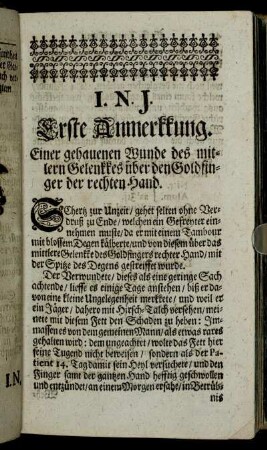 I. N. J.
Erste Anmerkkung.
Einer gehauenen Wunde des mit-
lern Gelenkkes über den Goldfin-
ger der rechten Hand.
SCHertz zur Unzeit / gehet selten ohne Ver-
druß zu Ende / welchen ein Gefreyter ein-
nehmen muste / da er mit einem Tambour
mit blossem Degen kälberte / und von diesem über das
mittlere Gelenke des Goldfingers rechter Hand / mit
der Spitze des Degens gestreiffet wurde.
Der Verwundete / dieses als eine geringe Sach
achtende / liesse es einige Tage anstehen / biß er da-
von eine kleine Ungelegenheit merckete / und weil er
ein Jäger / dahero mit Hirsch-Talch versehen / mei-
nete mit diesem Fett den Schaden zu heben: Im-
massen es von dem gemeinen Mann / als etwas rares
gehalten wird; dem ungeachtet / wolte das Fett hier
seine Tugend nicht beweisen / sondern als der Pa-
tient 14. Tag damit sein Heyl versuchete / und den
Finger samt der gantzen Hand hefftig geschwollen
und entzündet / an einem Morgen ersahe / in Betrüb-
nis
I. N.